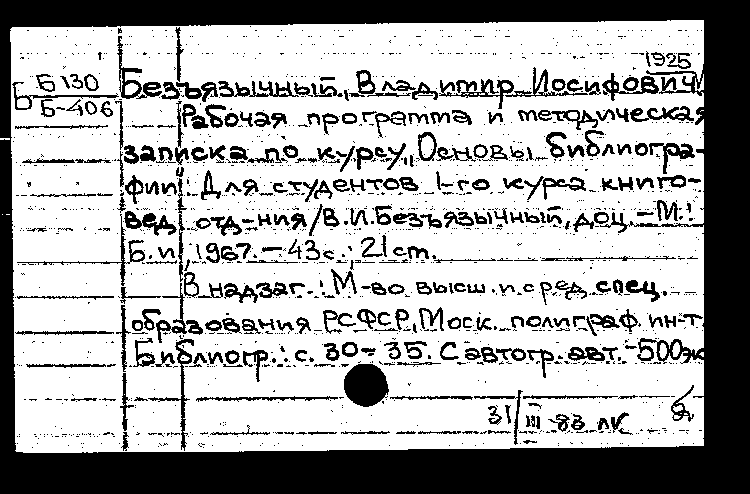 1925
Б Б130
Б-406
Безъязычный, Владимир Иосифович
Рабочая программа и методическая
записка по курсу „Основы библиогра-
фии": Для студентов 1-го курса книго-
вед. отд-ния / В.И.Безъязычный, доц. – М.:
Б.и, 1967. – 43с.; 21 cm.
В надзаг.: М-во высш. и сред. спец.
образования РСФСР, Моск. полиграф. ин-т.
Библиогр.: с. 30–35. С автогр. авт. – 500эк
31/III-83